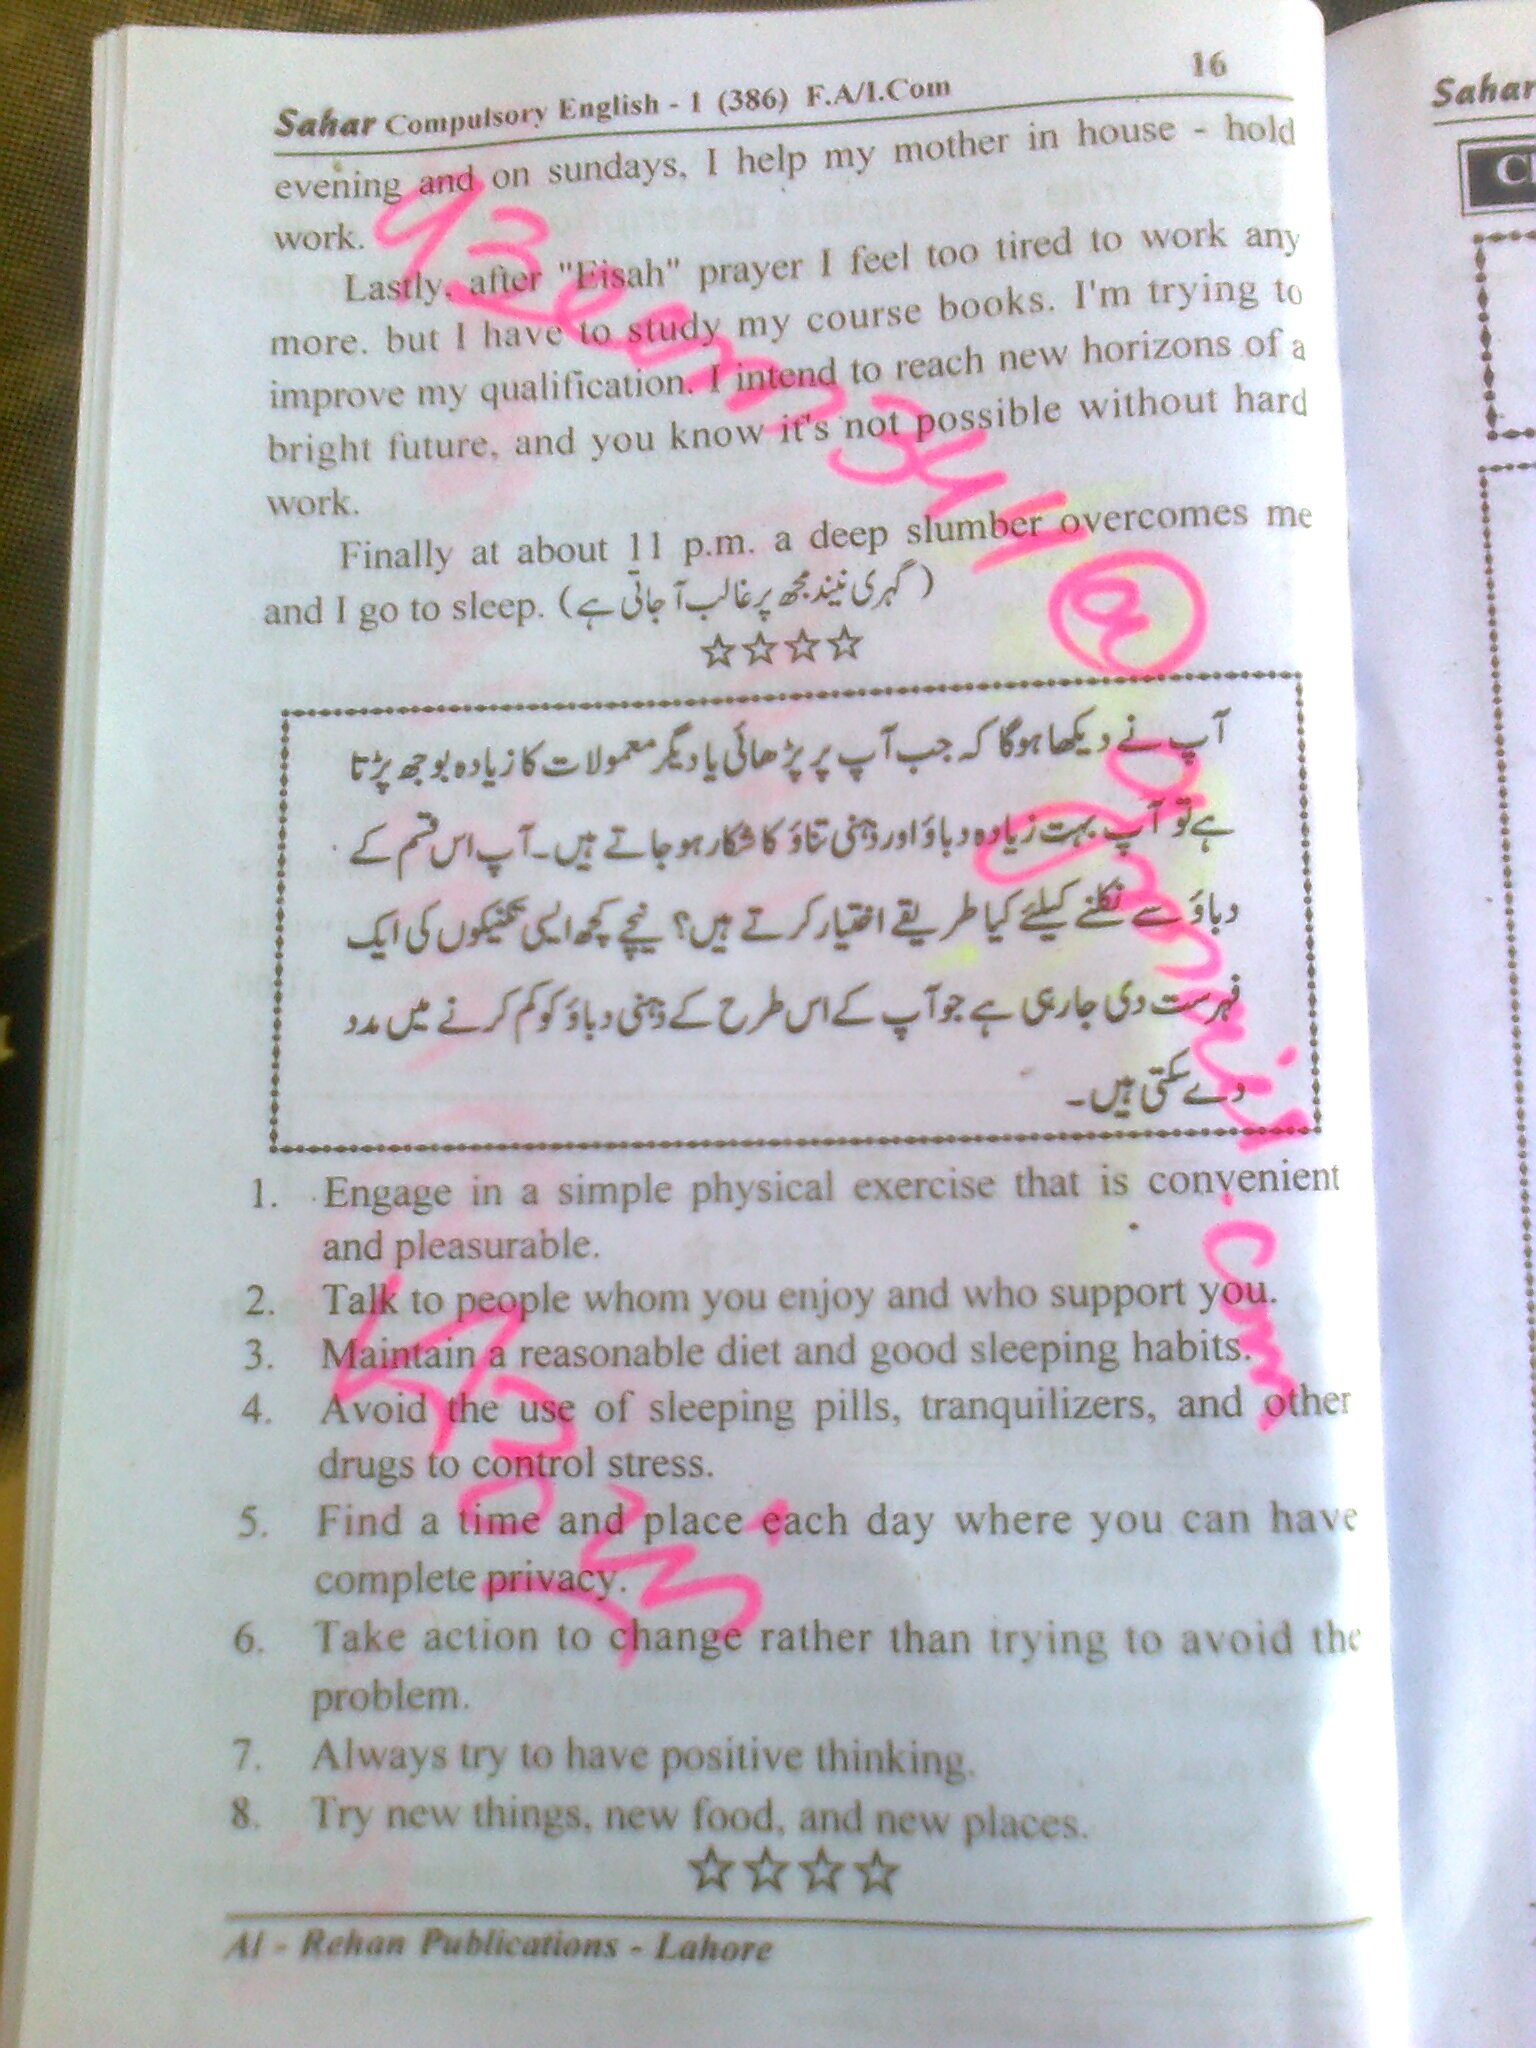 16
Sahar Compulsory English - 1 (386) F.A/I.Com
evening and on sundays, I help my mother in house - hold
work.
Lastly, after "Eisah" prayer I feel too tired to work any
more. but I have to study my course books. I'm trying to
improve my qualification. I intend to reach new horizons of a
bright future, and you know it's not possible without hard
work.
Finally at about 11 p.m. a deep slumber overcomes me
and I go to sleep. (گہری نیند مجھ پر غالب آ جاتی ہے)
☆☆☆☆
آپ نے دیکھا ہوگا کہ جب آپ پر پڑھائی یا دیگر معمولات کا زیادہ بوجھ پڑتا
ہے تو آپ بہت زیادہ دباؤ اور ذہنی تناؤ کا شکار ہو جاتے ہیں۔ آپ اس قسم کے
دباؤ سے نکلنے کیلئے کیا طریقے اختیار کرتے ہیں؟ نیچے کچھ ایسی تکنیکوں کی ایک
فہرست دی جا رہی ہے جو آپ کے اس طرح کے ذہنی دباؤ کو کم کرنے میں مدد
دے سکتی ہیں۔
1. Engage in a simple physical exercise that is convenient
and pleasurable.
2. Talk to people whom you enjoy and who support you.
3. Maintain a reasonable diet and good sleeping habits.
4. Avoid the use of sleeping pills, tranquilizers, and other
drugs to control stress.
5. Find a time and place each day where you can have
complete privacy.
6. Take action to change rather than trying to avoid the
problem.
7. Always try to have positive thinking.
8. Try new things, new food, and new places.
☆☆☆☆
Al - Rehan Publications - Lahore
Sahar